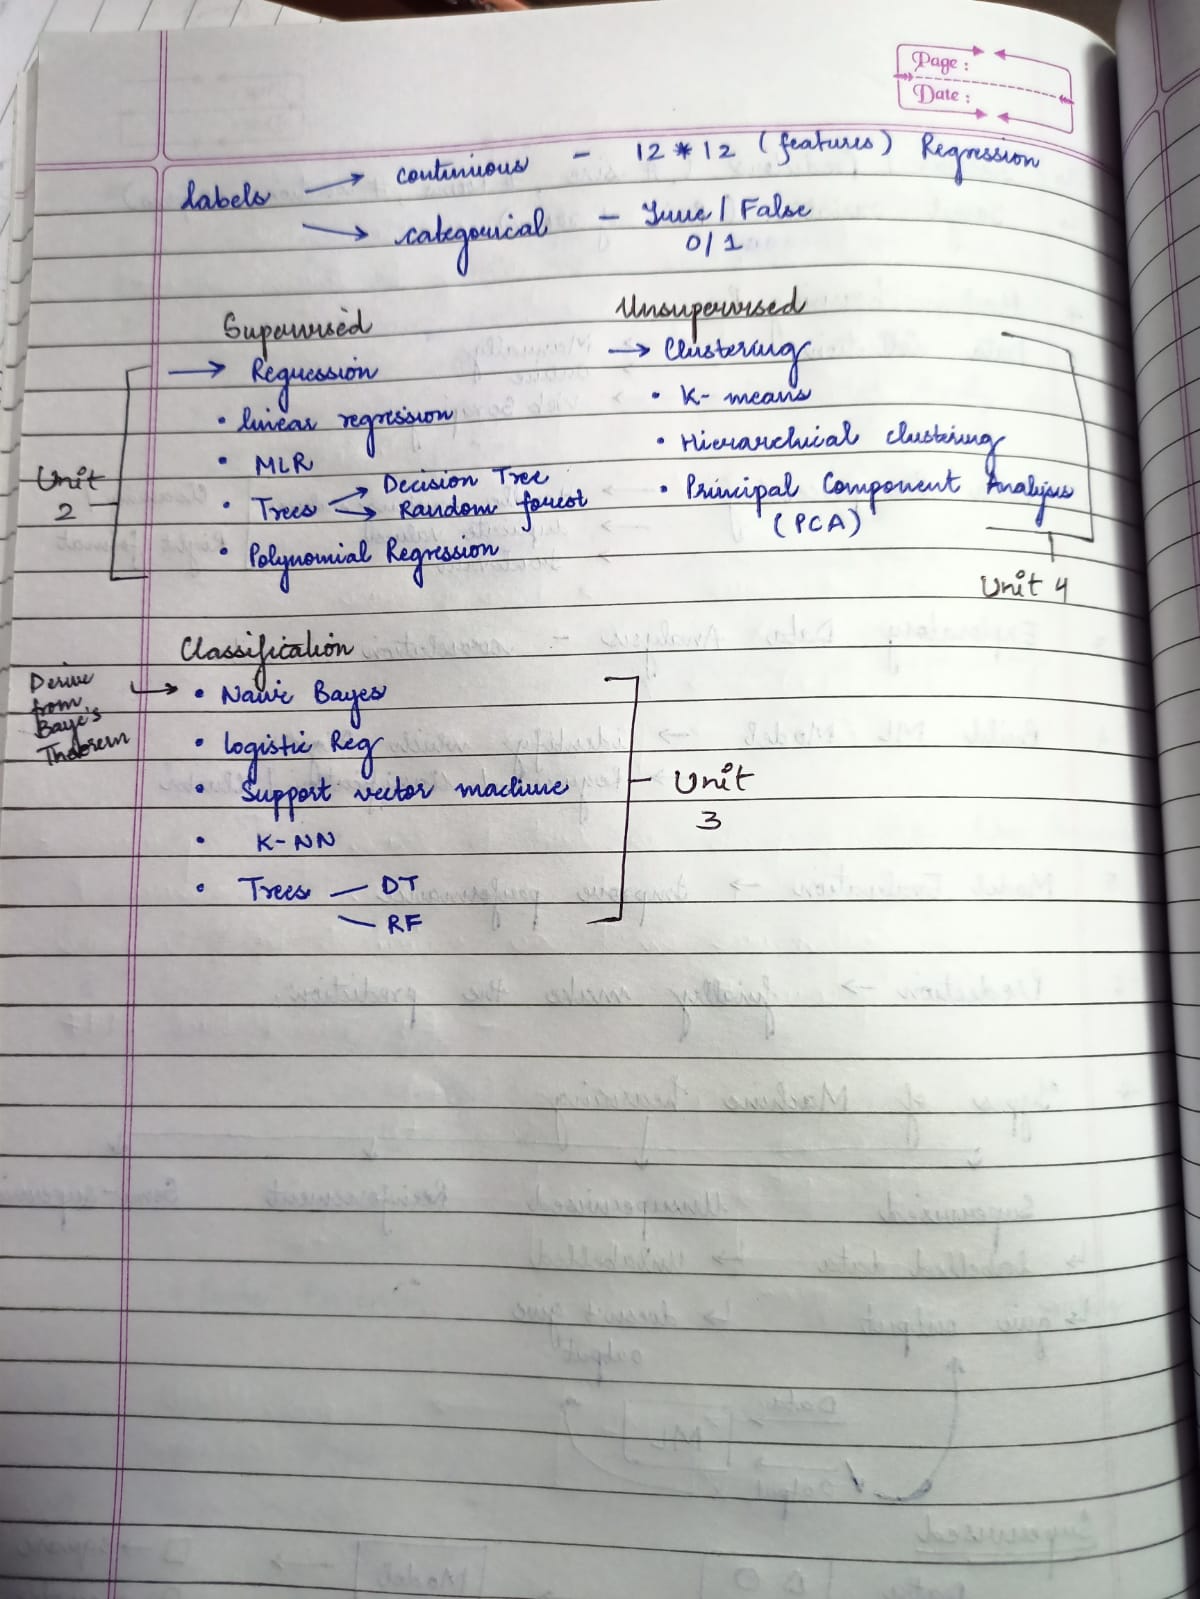 Page :
Date :
Labels → continuous - 12 * 12 (features) Regression
→ categorical - True / False
0/1
Supervised
→ Regression
• linear regression
• MLR
• Trees → Decision Tree
→ Random forest
• Polynomial Regression
Unit
2
Unsupervised
→ Clustering
• K-means
• Hierarchical clustering
• Principal Component Analysis
(PCA)
Unit 4
Classification
Derive
from
Baye's
Theorem
→ • Naive Bayes
• logistic Reg
• Support vector machine
• K-NN
• Trees — DT
— RF
Unit
3